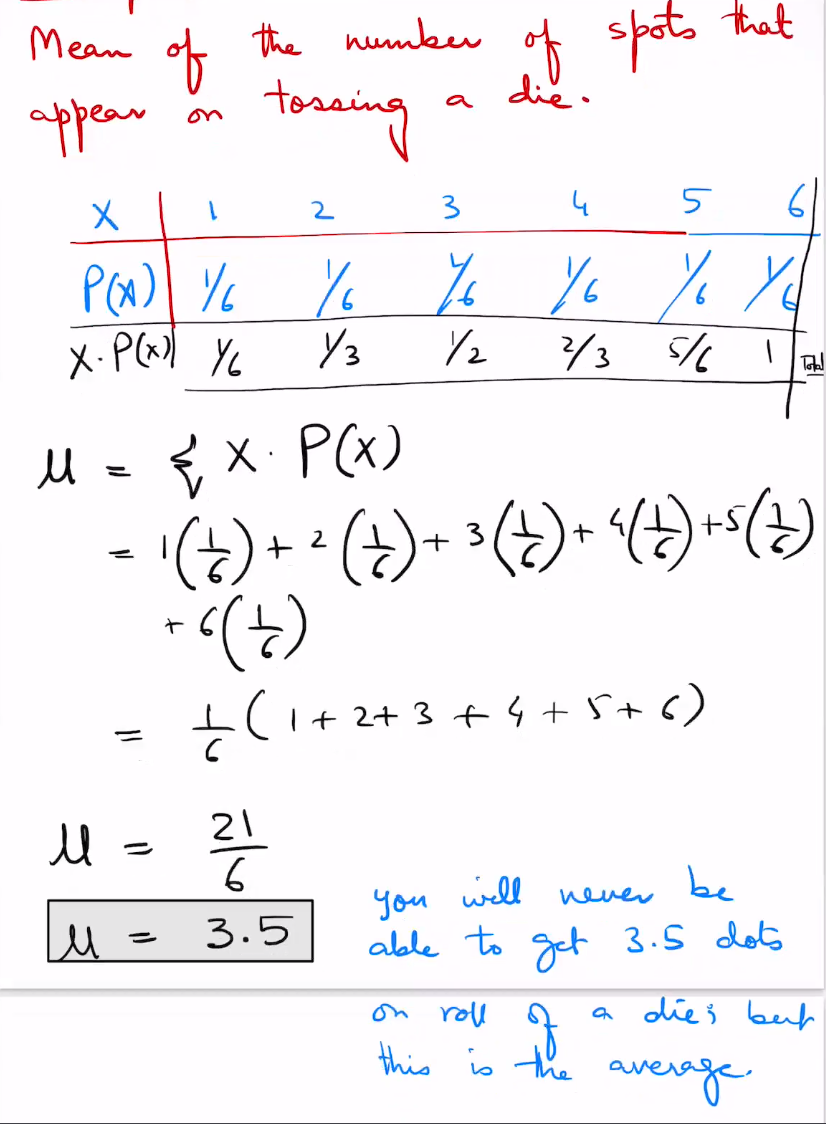 Mean of the number of spots that
appear on tossing a die.
X 1 2 3 4 5 6
P(X) 1/6 1/6 1/6 1/6 1/6 1/6
X·P(x) 1/6 1/3 1/2 2/3 5/6 1 Total
μ = Σ X· P(X)
= 1(1/6) + 2(1/6) + 3(1/6) + 4(1/6) + 5(1/6)
+ 6(1/6)
= 1/6 (1 + 2 + 3 + 4 + 5 + 6)
μ = 21/6
μ = 3.5
you will never be
able to get 3.5 dots
on roll of a die; but
this is the average.